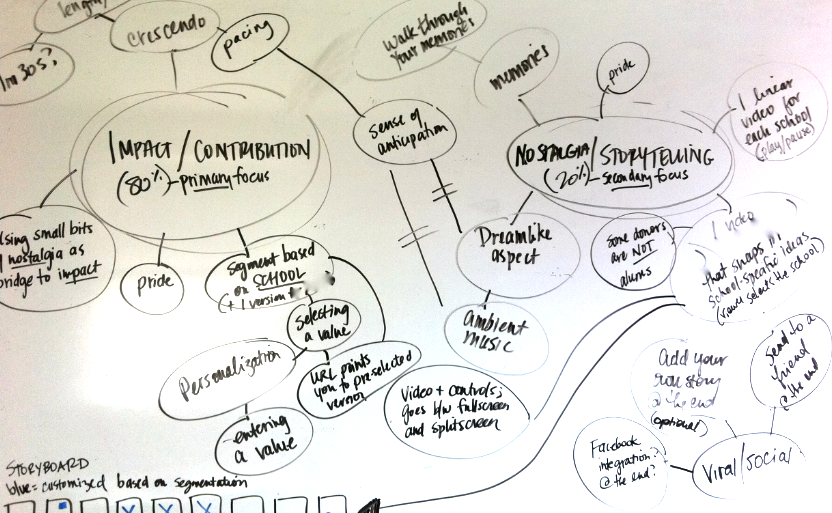 length
crescendo
pacing
1m 30s?
Walk through
your memories
memories
pride
1 linear
video for
each school
(play/pause)
sense of
anticipation
IMPACT/CONTRIBUTION
(80%)-primary focus
NOSTALGIA/STORYTELLING
(20%)-secondary focus
using small bits
nostalgia as
bridge to impact
pride
segment based
on SCHOOL
(+ 1 version +
Dreamlike
aspect
some donors
are NOT
alums
1 video
that swaps in
school-specific ideas
(user selects the school)
selecting
a value
ambient
music
Personalization
URL points
you to pre-selected
version
entering
a value
Video + controls;
goes b/w fullscreen
and splitscreen
Add your
own story
@ the end
(optional)
Send to a
friend
@ the end
Facebook
integration?
@ the end?
Viral/Social
STORYBOARD
blue=customized based on segmentation